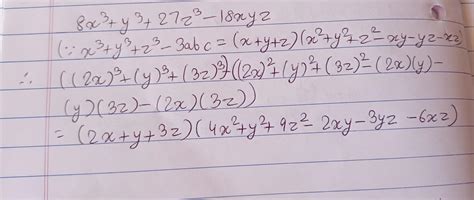 8x³+y³+27z³-18xyz
(∵ x³+y³+z³-3abc=(x+y+z)(x²+y²+z²-xy-yz-xz)
∴ ((2x)³+(y)³+(3z)³)((2x)²+(y)²+(3z)²-(2x)(y)-
(y)(3z)-(2x)(3z))
= (2x+y+3z)(4x²+y²+9z²-2xy-3yz-6xz)